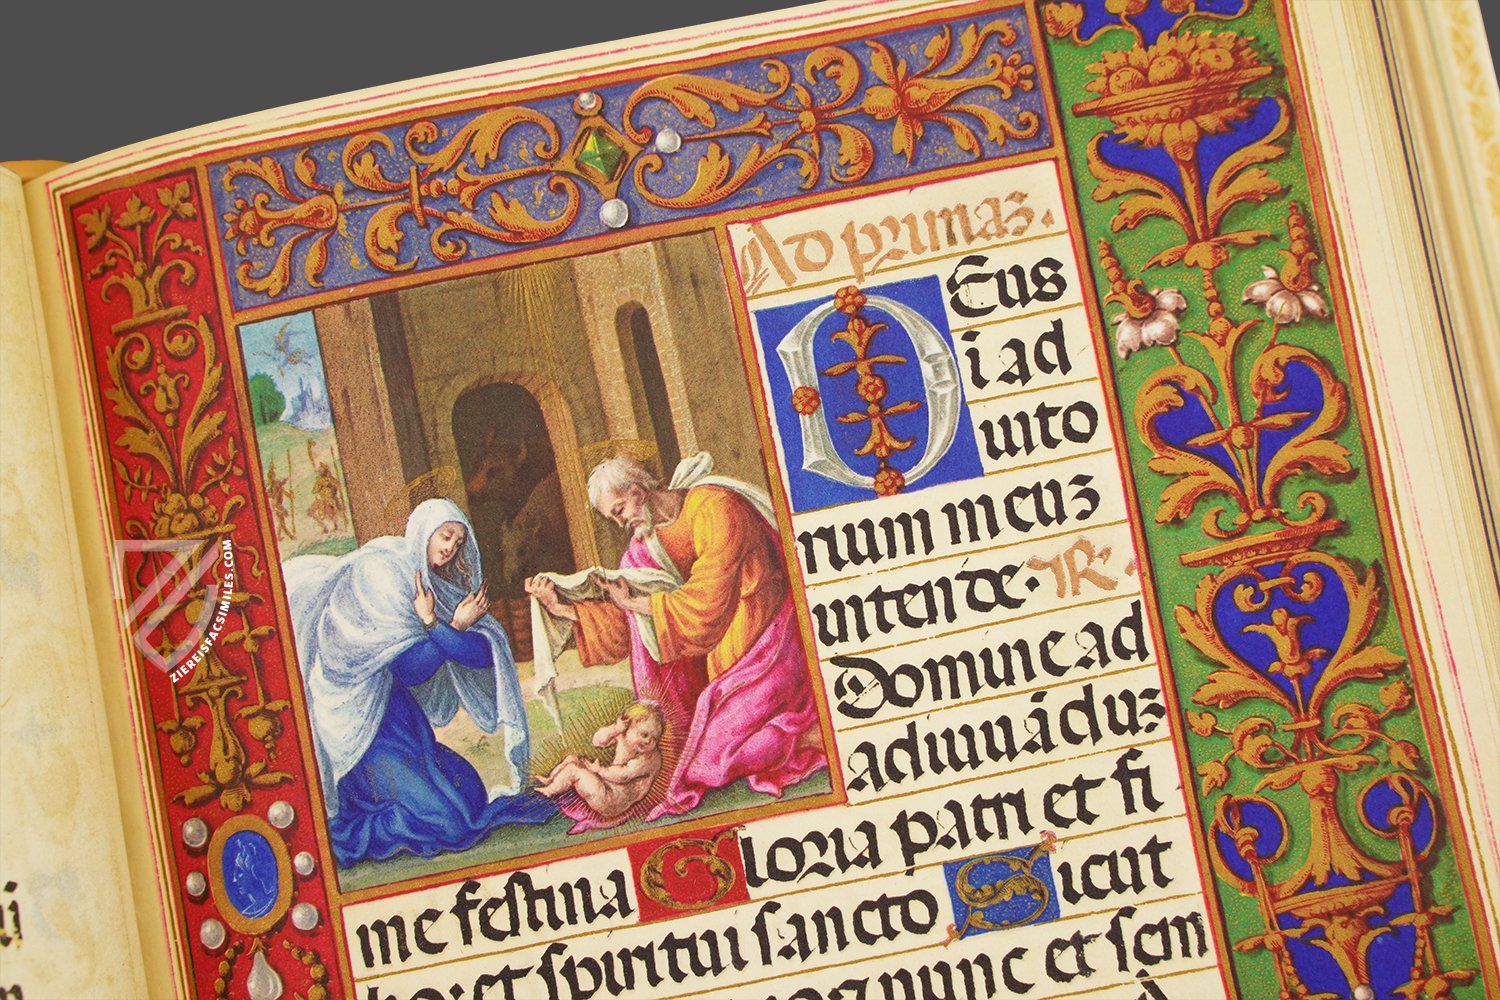 Ad primaz.
DEus
i ad
iuto
rium meuz
intende. R.
Domine ad
adiuuāduz
me festina Gloria patri et fi
et spiritui sancto Sicut
nunc et sem
ZIEREISFACSIMILES.COM